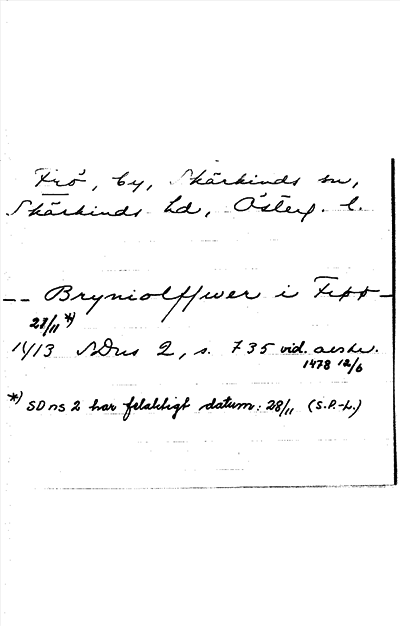 Frö, by, Skärkinds sn,
Skärkinds hd, Österg. l.
-- Bryniolffwer i Frøø -
23/11 *)
1413 SDns 2, s. 735 vid. avskr.
1478 12/6
*) SDns 2 har felaktigt datum: 28/11 (S.P.-L.)